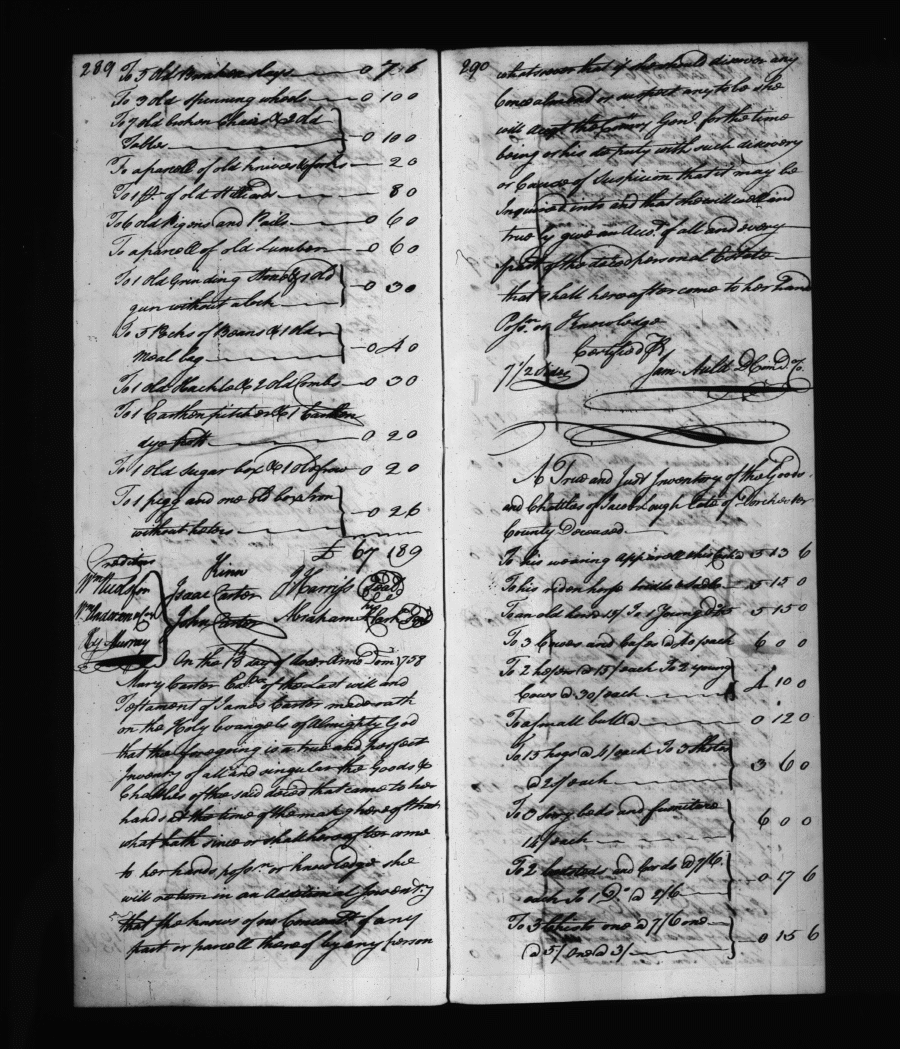 289
To 5 old Broken slays 0 7.6
To 3 old spinning wheels 0 10 0
To 7 old broken Chairs & 2 old
Tables 0 10 0
To a parcell of old knives & forks 2 0
To 1 old Stilliards 8 0
To 6 old Pigons and Pails 0 6 0
To a parcell of old Lumber 0 6 0
To 1 old Grinding Stone & 1 old
gun without a lock 0 3 0
To 3 Pecks of Beans & 1 old
Meal bag 0 4 0
To 1 old Hackle & 2 old Combs 0 3 0
To 1 Earthen pitcher & 1 Earthen
dye pott 0 2 0
To 1 old Sugar box & 1 old 0 2 0
To 1 pigg and one old box Iron
without heters 0 2 6
£ 67 18 9
Creditors
Wm Hudson
Wm
Hy Murray
Kinn
Isaac Carter
John Carter
J Harriss Seal
Abraham Seal
On the 18 day of Anno Dom 1758
Mary Carter Extx of the Last will and
Testament of James Carter made oath
on the Holy Evangels of Almighty God
that the foregoing is a true and perfect
Inventy of all and singular the Goods &
Chattles of the said deced that came to her
hands at the time of the making hereof that
what hath since or shall hereafter come
to her hands possn. or knowledge she
will return in an Additional Inventry
that she knows of no Concealmt of any
part or parcell thereof by any person
290
whatsoever that if she should discover any
Concealment or suspect any to be she
will acqt the Comry Genl. for the time
being or his deputy with such discovery
or Cause of Suspicion that it may be
Inquired into and that she will well and
truely give an Acct. of all and every
part of the deced personal Estate
that shall hereafter come to her hands
Possn. or Knowledge
Certified P
7 1/2 sides Jam Auld D Com D. Co.
A True and Just Inventory of the Goods
and Chattles of Jacob Lough late of Dorchester
County Deceased
To his wearing apperell 5 13 6
To his riden horse bridle & sadle 5 15 0
To an old horse To 1 Young Do 5 15 0
To 3 Cowes and Calfes @ 40 peach 6 0 0
To 2 heifers @ 15/ each To 2 young
Cows @ 30/ each 4 10 0
To a small bull @ 0 12 0
To 15 hogs @ 4/ each To 3 Shoates
@ 2/ each 3 6 0
To 3 beds and furniture
each 6 0 0
To 2 bedsteds and Cords @ 7/6
each To 1 Do. @ 2/6 0 17 6
To 3 Chests one @ 7/6 one
@ 5/ One @ 3/ 0 15 6